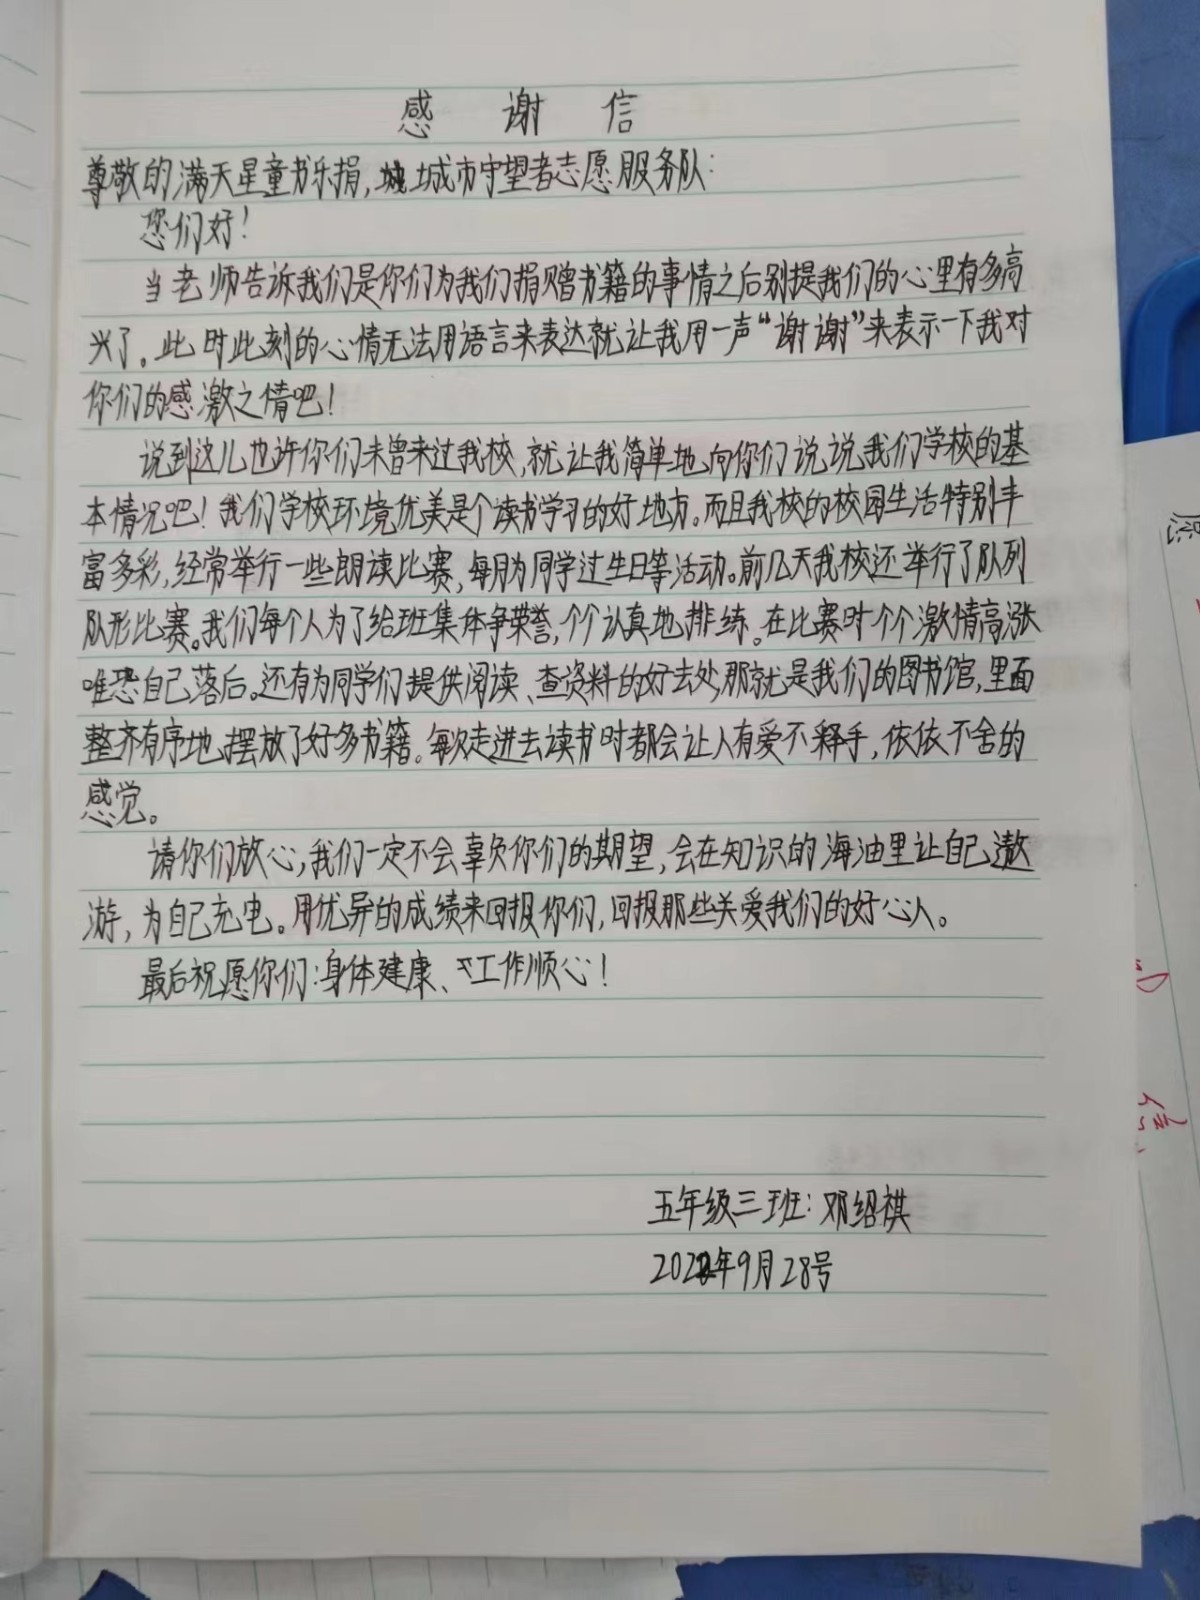 感谢信
尊敬的满天星童书乐捐，城城市守望者志愿服务队：
您们好！
当老师告诉我们是你们为我们捐赠书籍的事情之后别提我们的心里有多高
兴了。此时此刻的心情无法用语言来表达就让我用一声“谢谢”来表示一下我对
你们的感激之情吧！
说到这儿也许你们未曾来过我校，就让我简单地向你们说说我们学校的基
本情况吧！我们学校环境优美是个读书学习的好地方。而且我校的校园生活特别丰
富多彩，经常举行一些朗读比赛，每月为同学过生日等活动。前几天我校还举行了队列
队形比赛。我们每个人为了给班集体争荣誉，个个认真地排练。在比赛时个个激情高涨
唯恐自己落后。还有为同学们提供阅读、查资料的好去处那就是我们的图书馆，里面
整齐有序地摆放了好多书籍。每次走进去读书时都会让人有爱不释手，依依不舍的
感觉。
请你们放心，我们一定不会辜负你们的期望，会在知识的海油里让自己遨
游，为自己充电。用优异的成绩来回报你们，回报那些关爱我们的好心人。
最后祝愿你们：身体建康、工作顺心！
五年级三班：邓绍祺
2022年9月28号